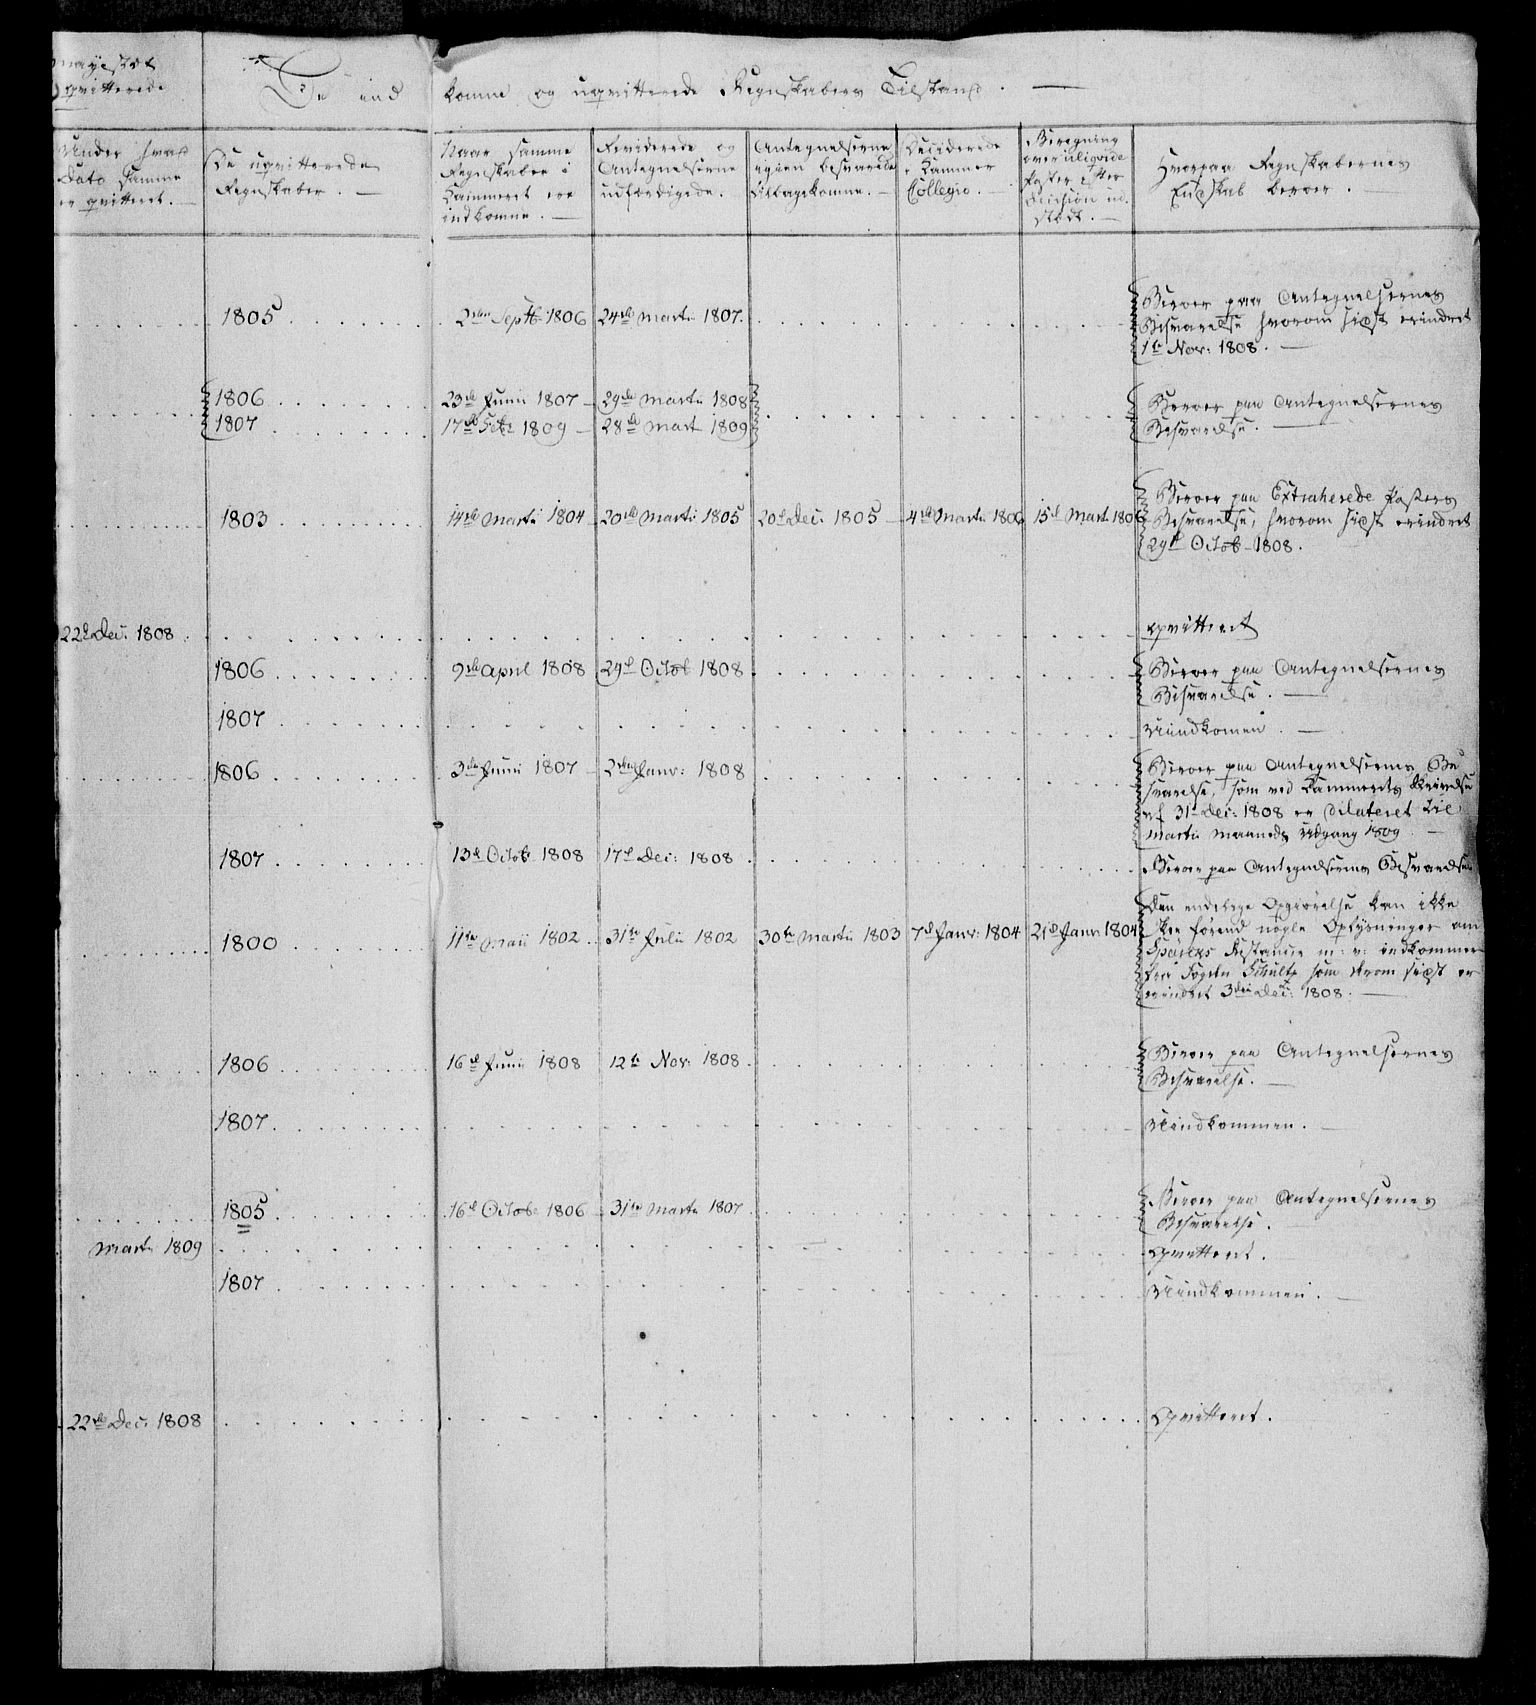 mayestet
qvitterede
De ind komne og uqvitterede Regnskabers Tilstand. —
Under hvad
Dato samme
er qvitteret. —
De uqvitterede
Regnskaber. —
Naar samme
Regnskaber i
Kammeret ere
indkomne. —
Reviderede og
Antegnelserne
udfærdigede.
Antegnelserne
igien besvarede
tilbagekomne. —
Deciderede
i Kammer
Collegio. —
Beregning
over uliqvide
Poster efter
Decision ud
stædt. —
Hvorpaa Regnskabernes
Endskab beroer.
1805 2den Septbr 1806 24de Marti 1807.
Beroer paa Antegnelsernes
Besvarelse hvorom sidst erindret
1te Nov: 1808. —
1806 23de Junii 1807 — 29de Martii 1808
1807 17de Febr 1809 — 28de Mart 1809
Beroer paa Antegnelsernes
Besvarelse. —
1803 14de Martii 1804 20de Martii 1805 20de Dec: 1805 — 4de Martii 1806 15de Mart 1806
Beroer paa Extraherede Posters
Besvarelse, hvorom sidst erindret
29de Octob 1808.
22de Dec: 1808 qvitteret
1806 9de April 1808 29de Octob 1808
Beroer paa Antegnelsernes
Besvarelse. —
1807 Uindkomen. —
1806 3die Junii 1807 — 2den Janv: 1808
Beroer paa Antegnelsernes Be
svarelse, som ved Kammerets Skrivelse
af 31te Dec: 1808 er dilateret til
Martii Maaneds Udgang 1809. —
1807 13de Octob 1808 17de Dec: 1808
Beroer paa Antegnelsernes Besvarelse
1800 11te Maii 1802 31te Julii 1802 30te Martii 1803 7de Janv: 1804 21de Janv: 1804
Den endelige Opgiørelse kan ikke
skee førend nogle Oplysninger om
Restancer m: v: indkommer
fra Fogden Schultz som hvorom sidst er
erindret 3die Dec: 1808. —
1806 16de Junii 1808 12te Nov: 1808
Beroer paa Antegnelsernes
Besvarelse. —
1807 Uindkommen. —
1805 16de Octob 1806 31te Marti 1807
Beroer paa Antegnelsernes
Besvarelse.
Marti 1809 qvitteret.
1807 Uindkommen. —
22de Dec: 1808 qvitteret.